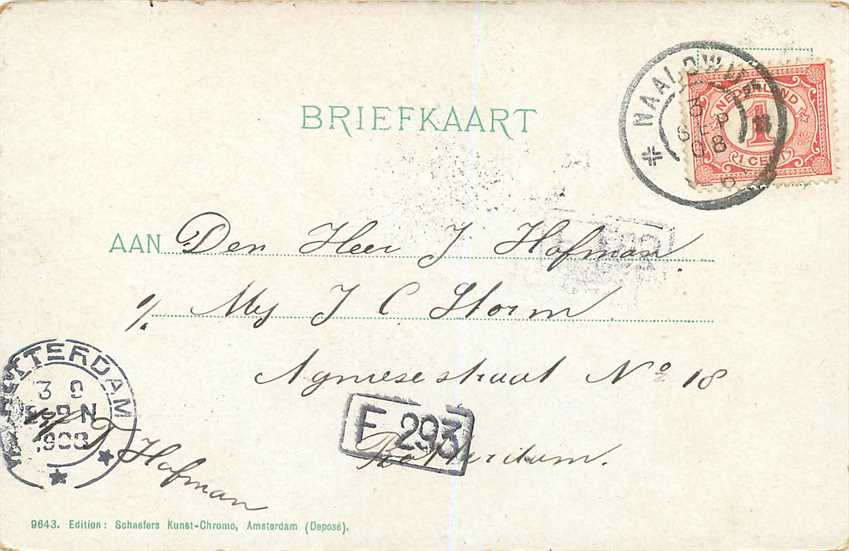 BRIEFKAART
NAALDWIJK
3 SEP 08
NEDERLAND
1
1 CENT
AAN Den Heer J Hofman
℅ Mej J C Storm
Agniesestraat No 18
Rotterdam.
F 293
ROTTERDAM
3 9
N
1908
Hofman
9643. Edition: Schaefers Kunst-Chromo, Amsterdam (Deposé).